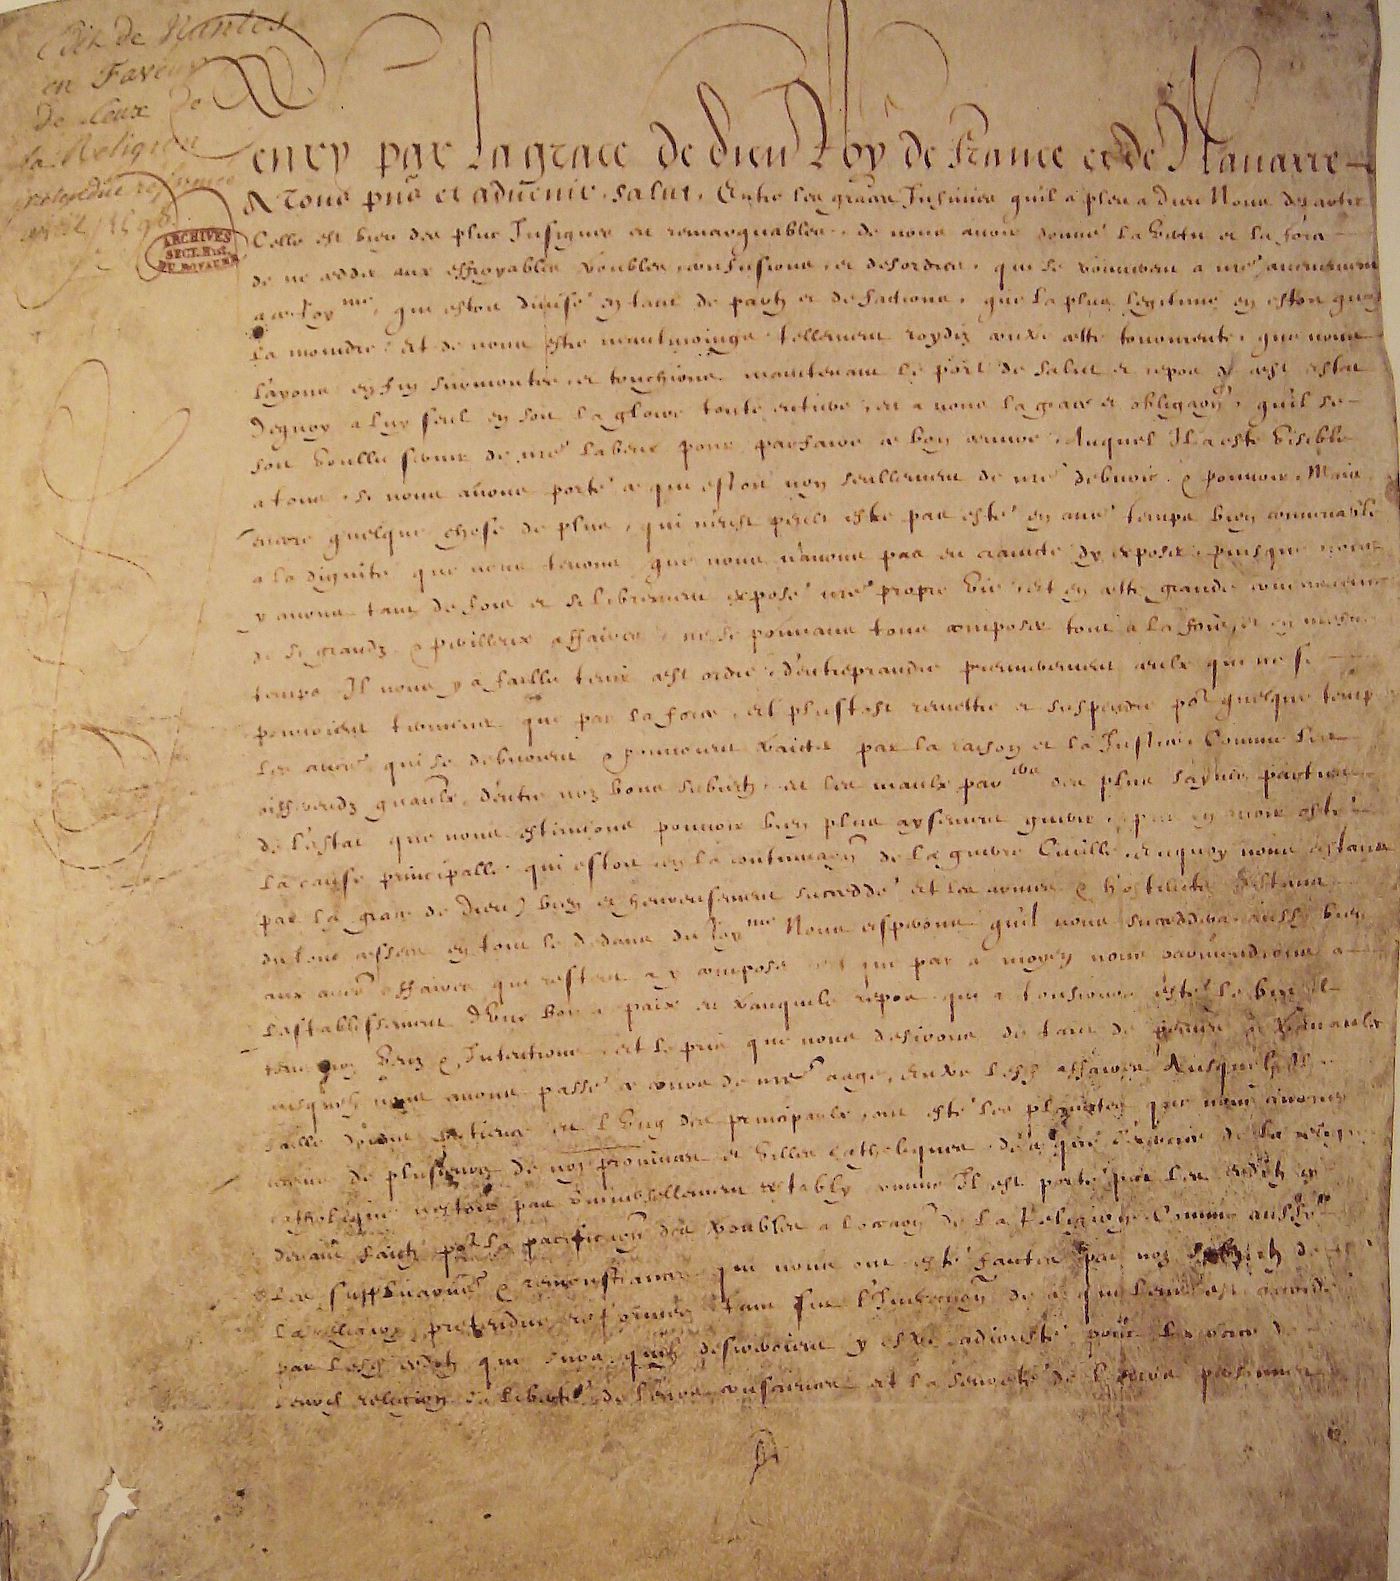 Edit de Nantes
en Faveur
de Ceux de
la Religion
pretendue reformée
avril 1598
ARCHIVES
SECT. HIST.
DU ROYAUME
enry par la grace de dieu Roy de France et de Nauarre
A Tous pñs et aduenir, salut, Entre les graces Infinies qu'il a pleu a dieu Nous departir
Celle est bien des plus Insignes et remarquables, de nous auoir donné la vertu et la force
de ne cedder aux effroyables troubles, confusions, et desordres, qui se trouuerent a nre aduenement
a ce Roy.me, qui estoit diuisé en tant de partz et de factions, que la plus legitime en estoit quasi
la moindre, Et de nous estre neantmoings tellement roydiz contre ceste tourmente, que nous
l'ayons en fin surmontée, et touchions maintenant le port de salut et repos de cest estat
Dequoy a luy seul en soit la gloire toute entiere, et a nous la grace et obligaon, qu'il se
soit voullu seruir de nre labeur pour parfaire ce bon œuure, Auquel Il a esté visible
a tous, si nous auons porté ce qui estoit non seullement de nre debuoir, & pouuoir, Mais
encore quelque chose de plus, qui n'eust peult estre pas esté en autre temps bien conuenable
a la dignité que nous tenons, que nous n'auons pas eu craincte d'y exposer, puisque nous
y auons tant de fois et si librement exposé nre propre vie, Et en ceste grande concurrence
de si grandz & perilleux affaires, ne se pouuans tous composer tout a la fois, et en mesme
temps, Il nous y a faillu tenir cest ordre, d'entreprandre premierement ceulx qui ne se
pouuoient terminer que par la force, et plustost remettre et suspendre por quelque temps
les autres qui se debuoient & pouuoient traicter par la raison et la Justice, Comme les
differendz generaulx d'entre noz bons subiectz, et les maulx par.ers des plus saynes parties
de l'estat que nous estimions pouuoir bien plus aysement guerir, apres en auoir osté
la cause principalle, qui estoit en la continuaon de la guerre Ciuille, Enquoy nous estant
(par la grace de Dieu) bien et heureusement succeddé, et les armes & hostilitez estans
du tout cessées en tout le dedans du Roy.me Nous esperons qu'il nous succeddera aussy bien
aux autres affaires qui restent a y composer, et que par ce moyen nous paruiendrons a
l'establissement d'une bonne paix et tranquile repos, qui a tousiours esté le but de
tous noz veuz & Intentions, et le prix que nous desirons de tant de peines & trauaulx
ausquelz nous auons passé ce cours de nre aage, Entre lesd. affaires Ausquelz Il a
faillu donner patience et l'vng des principaulx, ont esté les plainctes que nous auons
receues de plusieurs de noz prouinces et villes catholiques, de ce que l'exercice de la religion
catholique n'estoit pas vniuersellement restably, comme Il est porté par les edictz cy
deuant faictz por la paciffication des troubles a l'occaon de la Religion, Comme aussy
les supplicaons & remonstrances qui nous ont esté faictes par noz subiectz de
la religion pretendue refformée, tant sur l'Inexecuon de ce qui leur est accordé
par lesd. edictz que sur ce qu'ilz desireroient y estre adiousté pour l'exercice de
leurd. religion, la liberté de leurs consciences et la seureté de leurs personnes